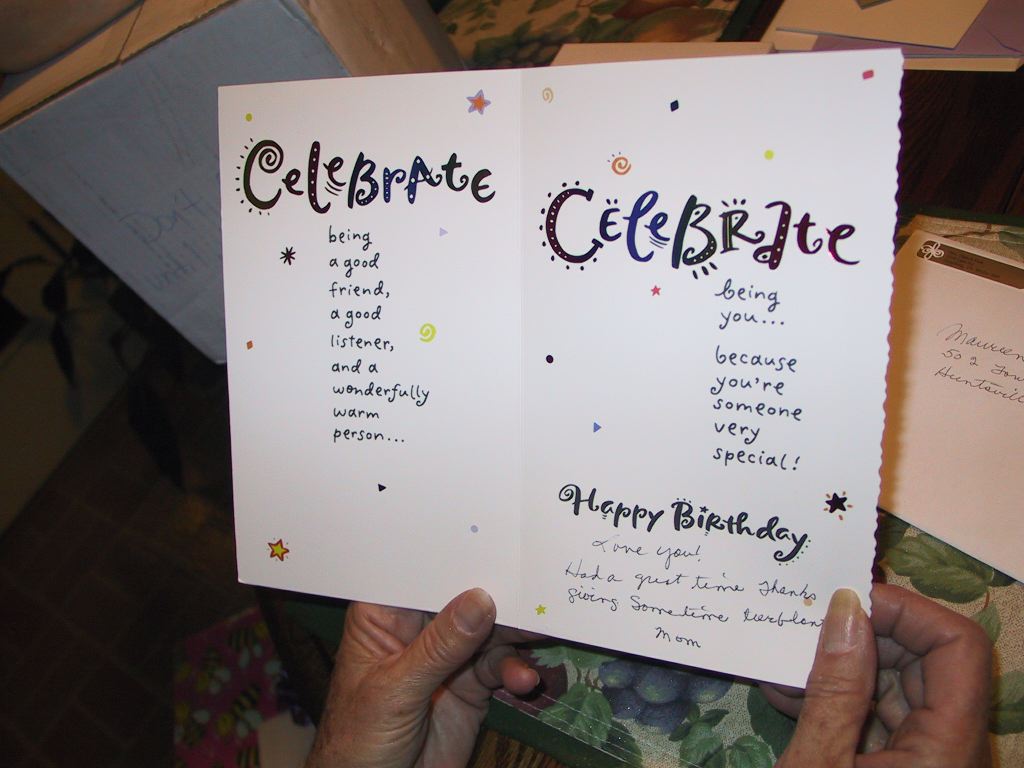 Celebrate
being
a good
friend,
a good
listener,
and a
wonderfully
warm
person...
Celebrate
being
you...
because
you're
someone
very
special!
Happy Birthday
Love you!
Had a great time Thanks
giving Sometime
Mom
Don't
Maureen
502
Huntsvill